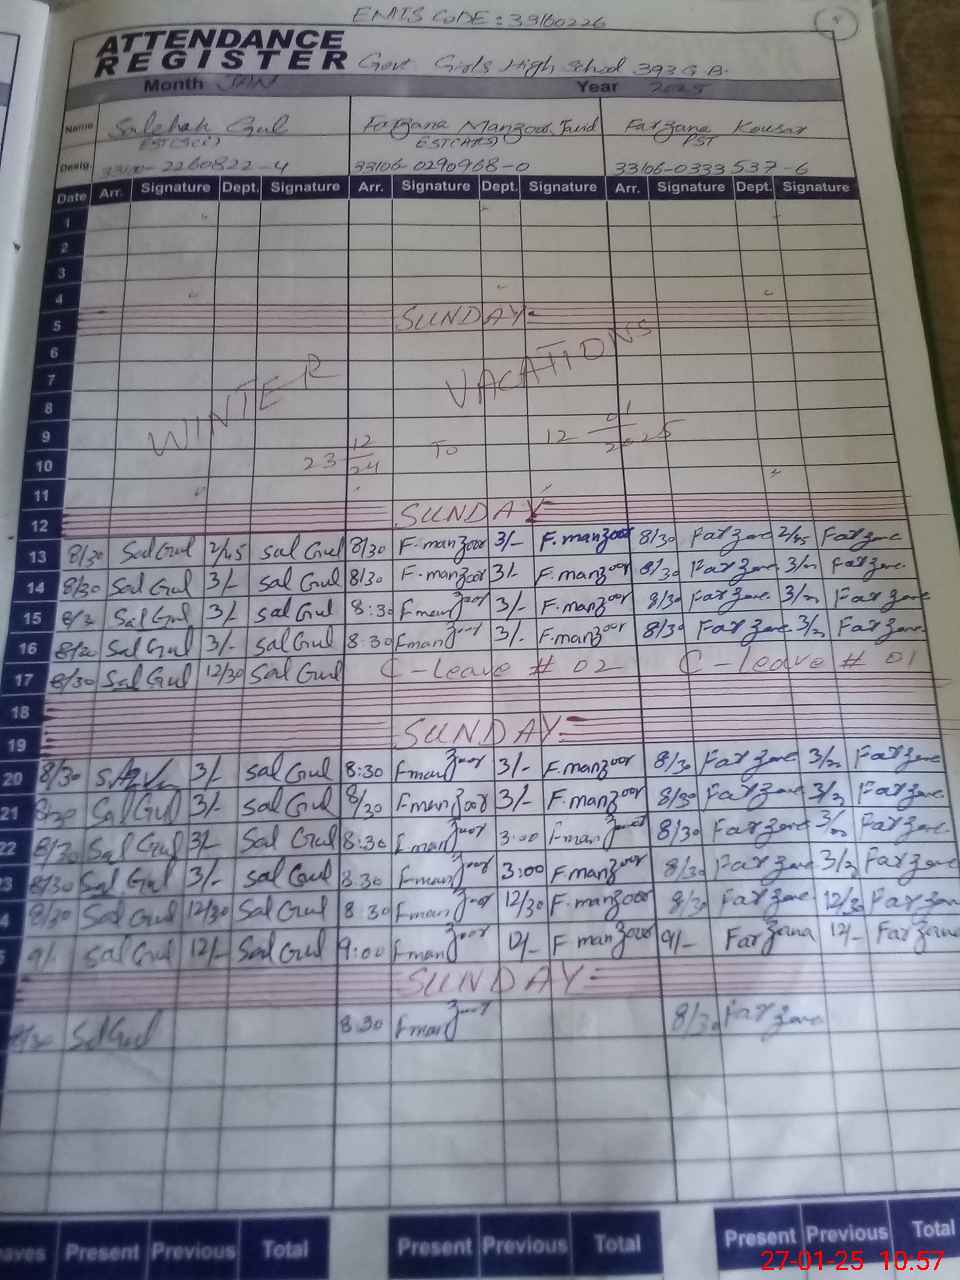 EMIS CODE: 39160226
ATTENDANCE
REGISTER Govt. Girls High School 393 G.B.
Month JAN Year 2025
Name Salehah Gul Farzana Manzoor Javid Farzana Kousar
EST(Sci) EST(Arts) PST
Desig. 33106-0290968-0 33106-0333537-6
Date Arr. Signature Dept. Signature Arr. Signature Dept. Signature Arr. Signature Dept. Signature
1
2
3
4
5 SUNDAY
6
7 WINTER VACATIONS
8
9 23 12/24 To 12 01/2025
10
11
12 SUNDAY
13 8/30 Sal Gul 2/45 Sal Gul 8/30 F.manzoor 3/- F.manzoor 8/30 Farzana 2/45 Farzana
14 8/30 Sal Gul 3/- Sal Gul 8/30 F.manzoor 3/- F.manzoor 8/30 Farzana 3/- Farzana
15 8/30 Sal Gul 3/- Sal Gul 8:30 Fmanzoor 3/- F.manzoor 8/30 Farzana 3/- Farzana
16 8/30 Sal Gul 3/- Sal Gul 8:30 Fmanzoor 3/- F.manzoor 8/30 Farzana 3/- Farzana
17 8/30 Sal Gul 12/30 Sal Gul C-Leave # 02 C-Leave # 01
18
19 SUNDAY
20 8/30 3/- Sal Gul 8:30 Fmanzoor 3/- F.manzoor 8/30 Farzana 3/- Farzana
21 8/30 Sal Gul 3/- Sal Gul 8/30 Fmanzoor 3/- F.manzoor 8/30 Farzana 3/- Farzana
22 8/30 Sal Gul 3/- Sal Gul 8:30 Fmanzoor 3:00 Fmanzoor 8/30 Farzana 3/- Farzana
23 8/30 Sal Gul 3/- Sal Gul 8.30 Fmanzoor 3:00 F.manzoor 8/30 Farzana 3/- Farzana
4 8/30 Sal Gul 12/30 Sal Gul 8.30 Fmanzoor 12/30 F.manzoor 8/30 Farzana 12/30 Farzana
5 9/- Sal Gul 12/- Sal Gul 9:00 Fmanzoor 12/- F manzoor 9/- Farzana 12/- Farzana
SUNDAY
8/30 Sal Gul 8.30 Fmanzoor 8/30 Farzana
aves Present Previous Total Present Previous Total Present Previous Total
27-01-25 10:57